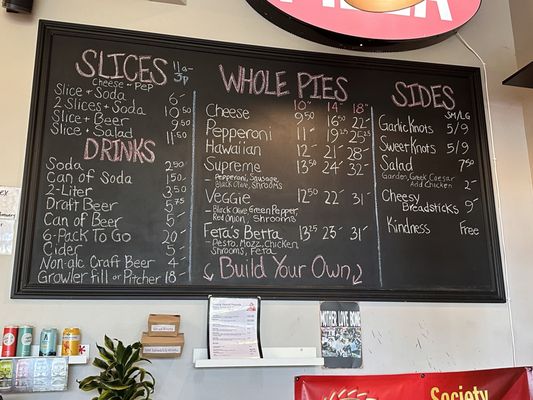 PIZZA
SLICES 11a-3p
Cheese - Pep
Slice + Soda 6-
2 Slices + Soda 10-
Slice + Beer 9.50
Slice + Salad 11.50
DRINKS
Soda 2.50
Can of Soda 1.50
2-Liter 3.50
Draft Beer 5.75
Can of Beer 5-
6-Pack To Go 20-
Cider 5-
Non-alc Craft Beer 4
Growler fill or Pitcher 18-
WHOLE PIES
10" 14" 18"
Cheese 9.50 16.50 22-
Pepperoni 11- 19.25 25.25
Hawaiian 12- 21- 28-
Supreme 13.50 24- 32-
- Pepperoni, Sausage,
Black Olive, Shrooms
Veggie 12.50 22- 31-
- Black Olive, Green Pepper,
Red Onion, Shrooms
Feta's Betta 13.25 23- 31-
- Pesto, Mozz, Chicken
Shrooms, Feta
Build Your Own
SIDES
SM/LG
Garlic Knots 5/9
Sweet Knots 5/9
Salad 7.50
Garden, Greek, Caesar
Add Chicken 2-
Cheesy
Breadsticks 9-
Kindness Free
MOTHER LOVE BONE
Society